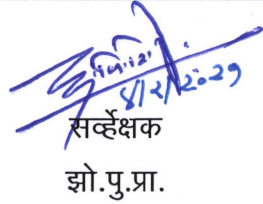 ४/२/२०२१
सर्व्हेक्षक
झो.पु.प्रा.